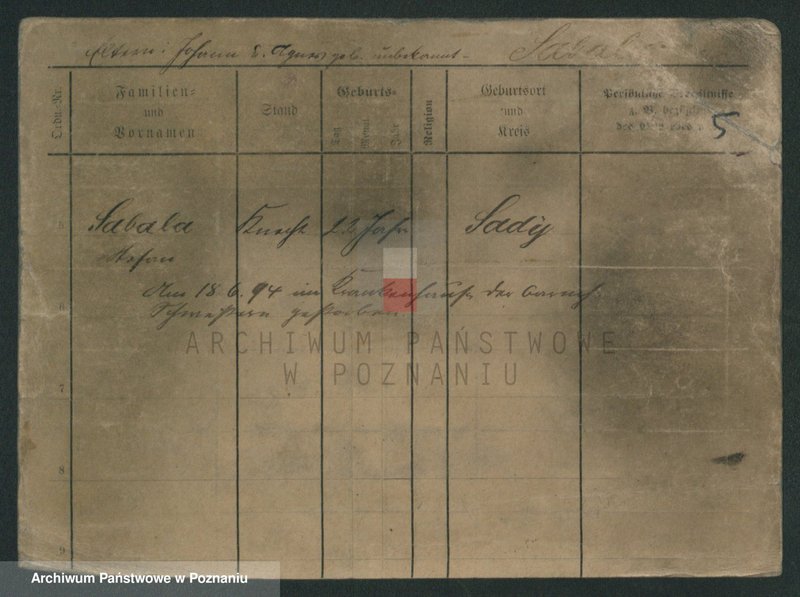 Eltern: Johann u. Agnes geb. unbekannt –
Sabala
Ordn.-Nr.
Familien- und Vornamen
Stand
Geburts-
Tag
Monat
Jahr
Religion
Geburtsort und Kreis
Persönliche Verhältnisse
5
5
Sabala
Knecht
22 Jahr
Sady
Stefan
Am 18.6.94 im Krankenhause der barmh.
Schwestern gestorben.
6
ARCHIWUM PAŃSTWOWE
W POZNANIU
7
8
9
Archiwum Państwowe w Poznaniu